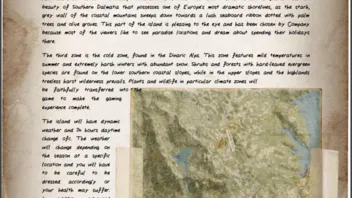 beauty of Southern Dalmatia that possesses one of Europe's most dramatic shorelines, as the stark,
grey wall of the coastal mountains sweeps down towards a lush seaboard ribbon dotted with palm
trees and olive groves. This part of the island is pleasing to the eye and has been chosen by Company
because most of the viewers like to see paradise locations and dream about spending their holidays
there.
The third zone is the cold zone, found in the Dinaric Alps. This zone features mild temperatures in
summer and extremely harsh winters with abundant snow. Shrubs and forests with hard-leaved evergreen
species are found on the lower southern coastal slopes, while in the upper slopes and the highlands
treeless harsh wilderness prevails. Plants and wildlife in particular climate zones will
be faithfully transferred into the
game to make the gaming
experience complete.
The island will have dynamic
weather and 24 hours daytime
change ofc. The weather
will change depending on
the season at a specific
location and you will have
to be careful to be
dressed accordingly or
your health may suffer.